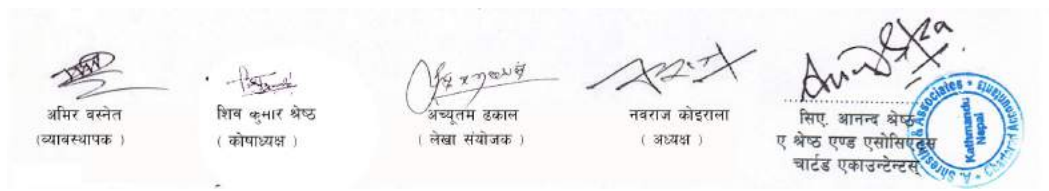 अमिर वस्नेत
(व्यावस्थापक )
शिव कुमार श्रेष्ठ
( कोषाध्यक्ष )
अच्यूतम ढकाल
( लेखा संयोजक )
नवराज कोइराला
( अध्यक्ष )
सिए. आनन्द श्रेष्ठ
ए श्रेष्ठ एण्ड एसोसिएट्स
चार्टड एकाउन्टेन्टस्
A. Shrestha & Associates * Chartered Accountants *
Kathmandu
Nepal